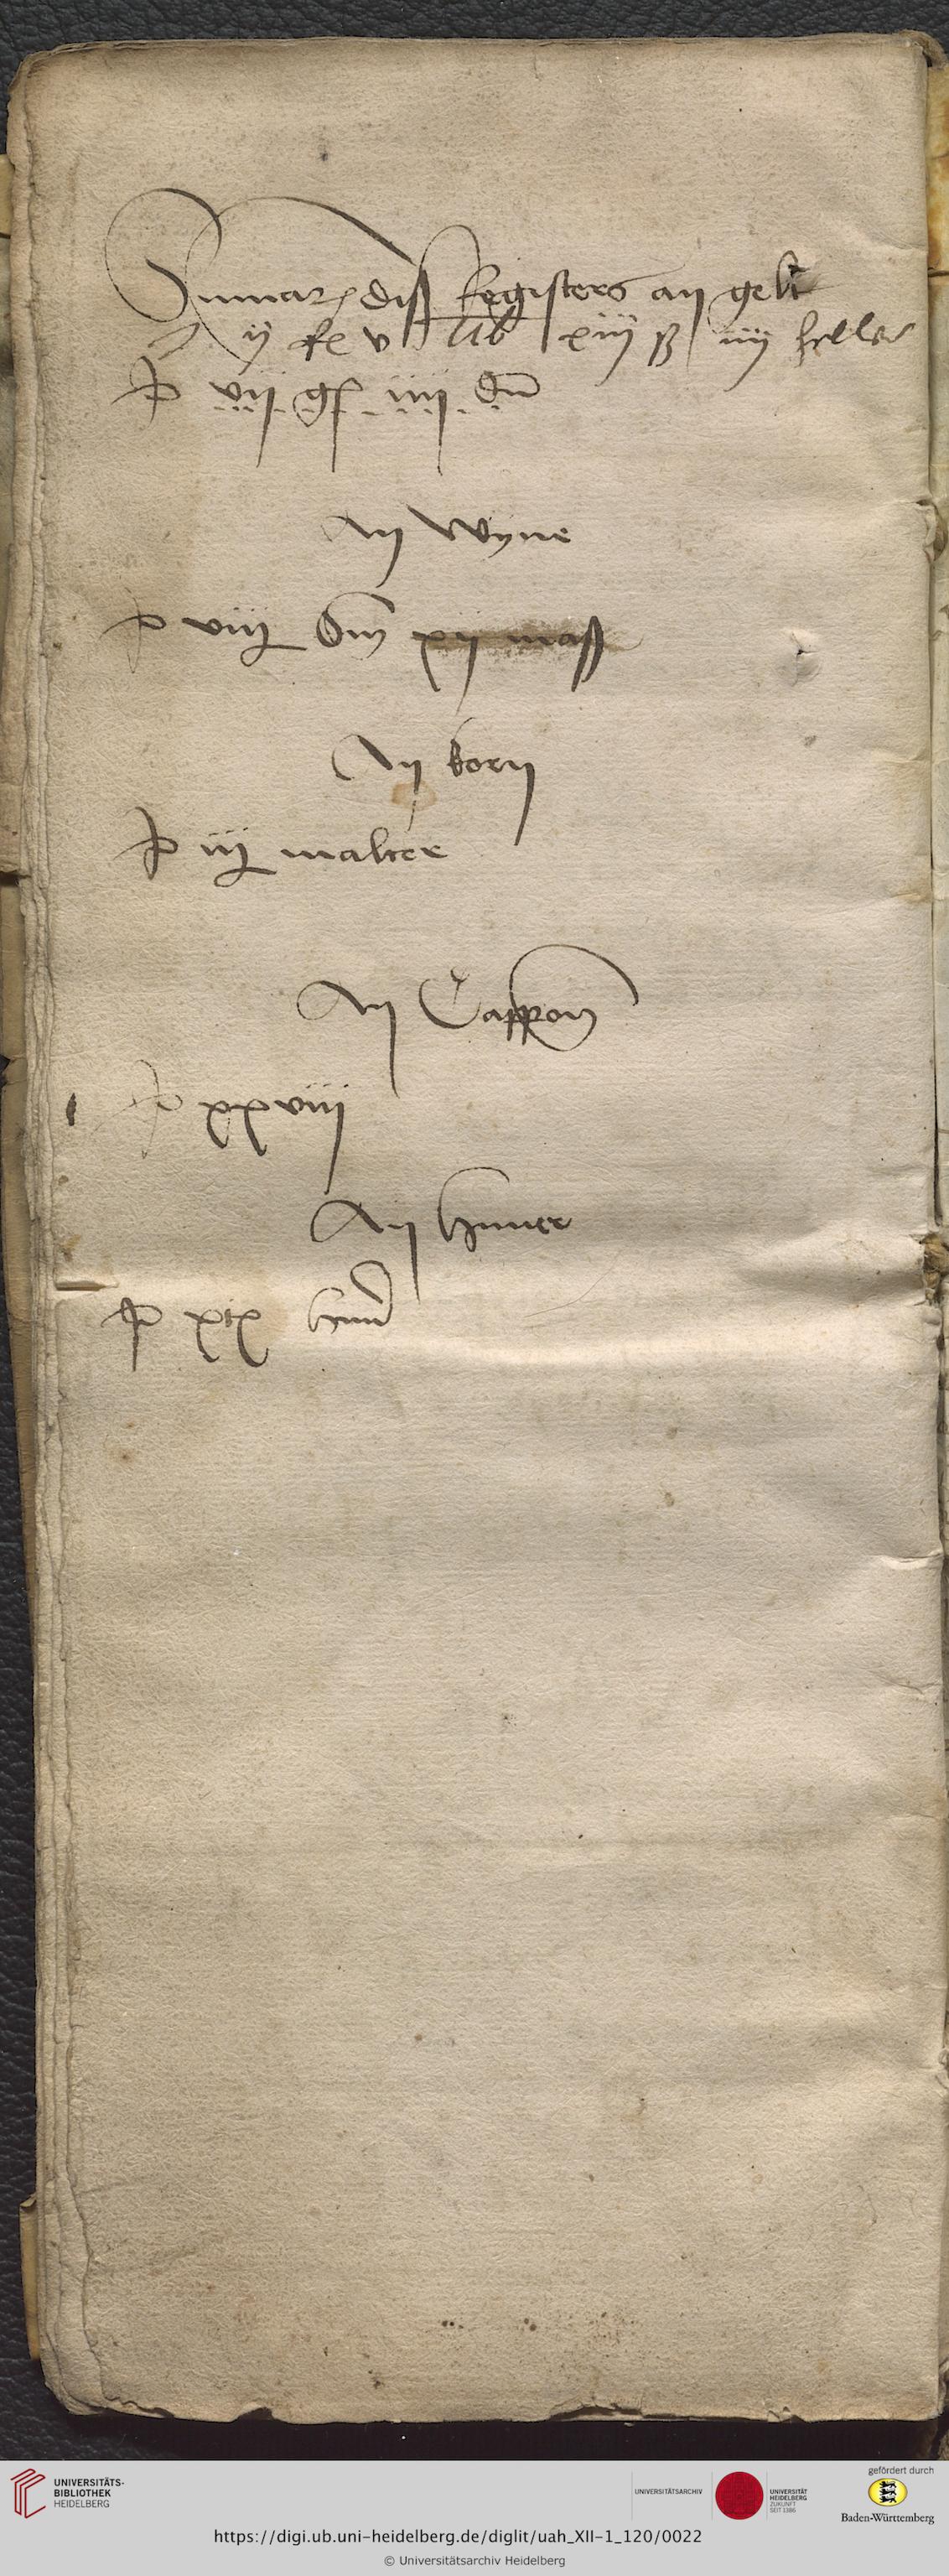 Sumarum diß Registers an gelt
v lib xiiij ß iiij heller
vij gß iiij dn
An Wyne
viij Om xij maß
An korn
iij malter
An Cappon
xxviij
An huner
xix hun
UNIVERSITÄTS-
BIBLIOTHEK
HEIDELBERG
UNIVERSITÄTSARCHIV
UNIVERSITÄT
HEIDELBERG
ZUKUNFT
SEIT 1386
gefördert durch
Baden-Württemberg
https://digi.ub.uni-heidelberg.de/diglit/uah_XII-1_120/0022
© Universitätsarchiv Heidelberg